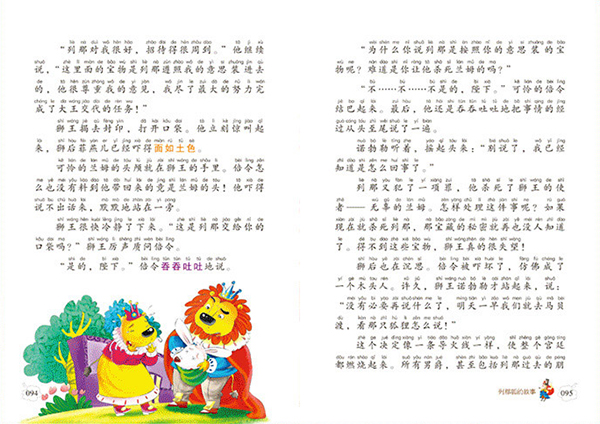 “列那对我很好，招待得很周到。”他继续
说，“这里面的宝物是列那遵照我的意思装进去
的，他很尊重我的意见，我尽了最大的努力完
成了大王交代的任务！”
狮王揭去封印，打开口袋。他立刻惊叫起
来，狮后菲燕儿已经吓得面如土色。
可怜的兰姆的头颅就在狮王的手里。倍令怎
么也没有料到他带回来的竟是兰姆的头！他吓得
说不出话来，默默地站在一旁。
狮王很快冷静了下来。“这是列那交给你的
口袋吗？”狮王厉声质问倍令。
“是的，陛下。”倍令吞吞吐吐地说。
094
“为什么你说列那是按照你的意思装的宝
物呢？难道是你让他杀死兰姆的吗？”
“不……不……不是的，陛下。”可怜的倍令
结巴起来。最后，他还是吞吞吐吐地把事情的经
过从头至尾说了一遍。
诺勃勒听着，摇起头来：“别说了，我已经
知道是怎么回事了。”
列那又犯了一项罪，他杀死了狮王的使
者——无辜的兰姆。怎样处理这件事呢？如果
现在就杀死列那，那宝藏的秘密就再也没人知道
了。得不到这些宝物，狮王真的很失望！
狮后也在沉思。倍令被吓坏了，仿佛成了
一个木头人。许久，狮王诺勃勒才站起来，说：
“没有必要再说什么了，明天一早我们就去马贝
渡，看那只狐狸怎么说！”
这个决定像一条导火线一样，使整个宫廷
都燃烧起来。所有男爵，甚至包括列那过去的朋
列那狐的故事
095